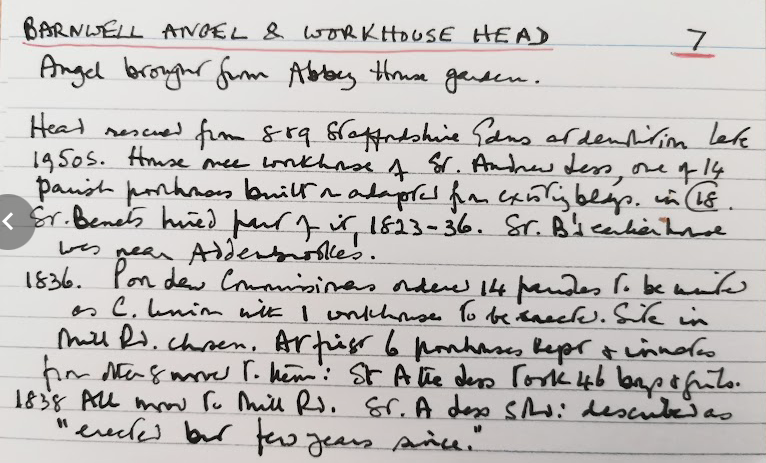 BARNWELL ANGEL & WORKHOUSE HEAD 7
Angel brought from Abbey House garden.
Head rescued from 8 & 9 Staffordshire Gdns at demolition late
1950s. House once workhouse of St. Andrew Less, one of 14
parish poorhouses built or adapted from existing bldgs. in C18.
St. Benets hired part of it, 1823-36. St. B's earlier house
was near Addenbrooke's.
1836. Poor Law Commissioners ordered 14 parishes to be united
as C. Union with 1 workhouse to be erected. Site in
Mill Rd. chosen. At first 6 poorhouses kept & inmates
from others moved to them: St A the Less took 46 boys & girls.
1838 All moved to Mill Rd. St. A Less : described as
"erected but few years since."